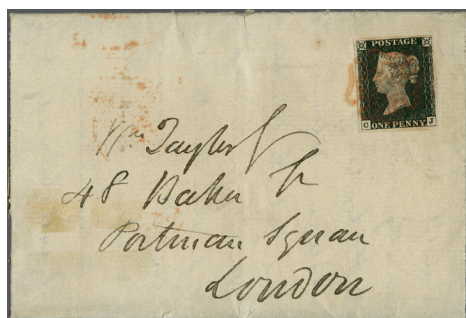 POSTAGE
C J
ONE PENNY
Wm Taylor
48 Baker St
Portman Square
London